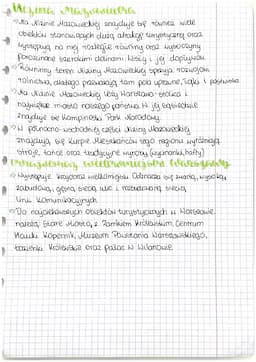 Nizina Mazowiecka
Na Nizinie Mazowieckiej znajduje się również wiele
obiektów stanowiących dużą atrakcję turystyczną oraz
występują na niej rozległe równiny oraz wysoczyzny
porozcinane szerokimi dolinami Wisły i jej dopływów.
Równinny teren Niziny Mazowieckiej sprzyja rozwojowi
rolnictwa, dlatego przeważają tam pola uprawne, łąki i pastwiska
Na Nizinie Mazowieckiej leży Warszawa - stolica i
największe miasto naszego państwa. W jej sąsiedztwie
znajduje się Kampinoski Park Narodowy.
W północno-wschodniej części Niziny Mazowieckiej
znajdują się Kurpie. Mieszkańców tego regionu wyróżniają
stroje, tańce oraz tradycyjne wyroby (wycinanki, hafty)
Krajobraz wielkomiejski Warszawy
Występuje krajobraz wielkomiejski. Odznacza się zwartą, wysoką
zabudową, gęstą siecią ulic i rozbudowaną siecią
linii komunikacyjnych.
Do najciekawszych obiektów turystycznych w Warszawie
należą: Stare Miasto, z Zamkiem Królewskim, Centrum
Nauki Kopernik, Muzeum Powstania Warszawskiego,
Łazienki Królewskie oraz pałac w Wilanowie.